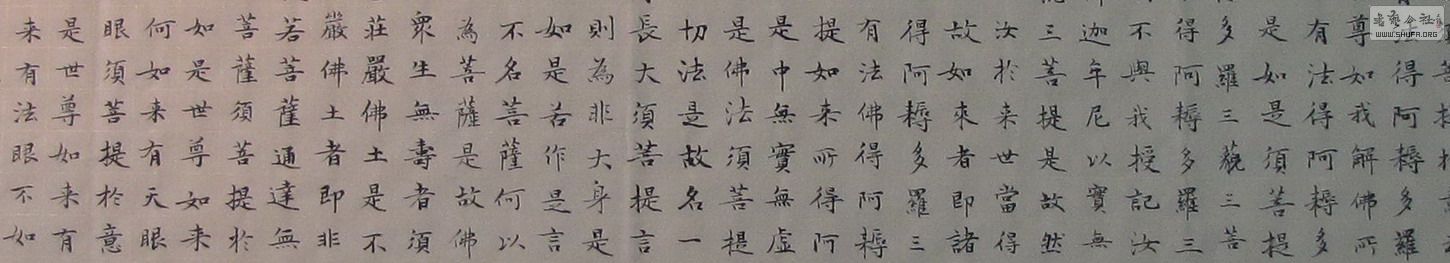 得阿耨多羅
尊如我解佛所
有法得阿耨多
是如是須菩提
多羅三藐三菩
得阿耨多羅三
不與我授記汝
迦牟尼以實無
三菩提是故然
汝於来世當得
故如來者即諸
得阿耨多羅三
有法佛得阿耨
提如来所得阿
是中無實無虛
是佛法須菩提
切法是故名一
長大須菩提言
則為非大身是
如是若作是言
不名菩薩何以
為菩薩是故佛
眾生無壽者須
莊嚴佛土是不
嚴佛土者即非
若菩薩通達無
菩薩須菩提於
如是世尊如来
何如来有天眼
眼須菩提於意
是世尊如来有
来有法眼不如
WWW.SHUFA.ORG